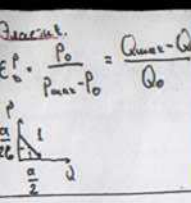 Эластич.
E^P_D = P_0 / (P_max - P_0) = (Q_max - Q / Q_0
P
a
2b
1
a/2
Q